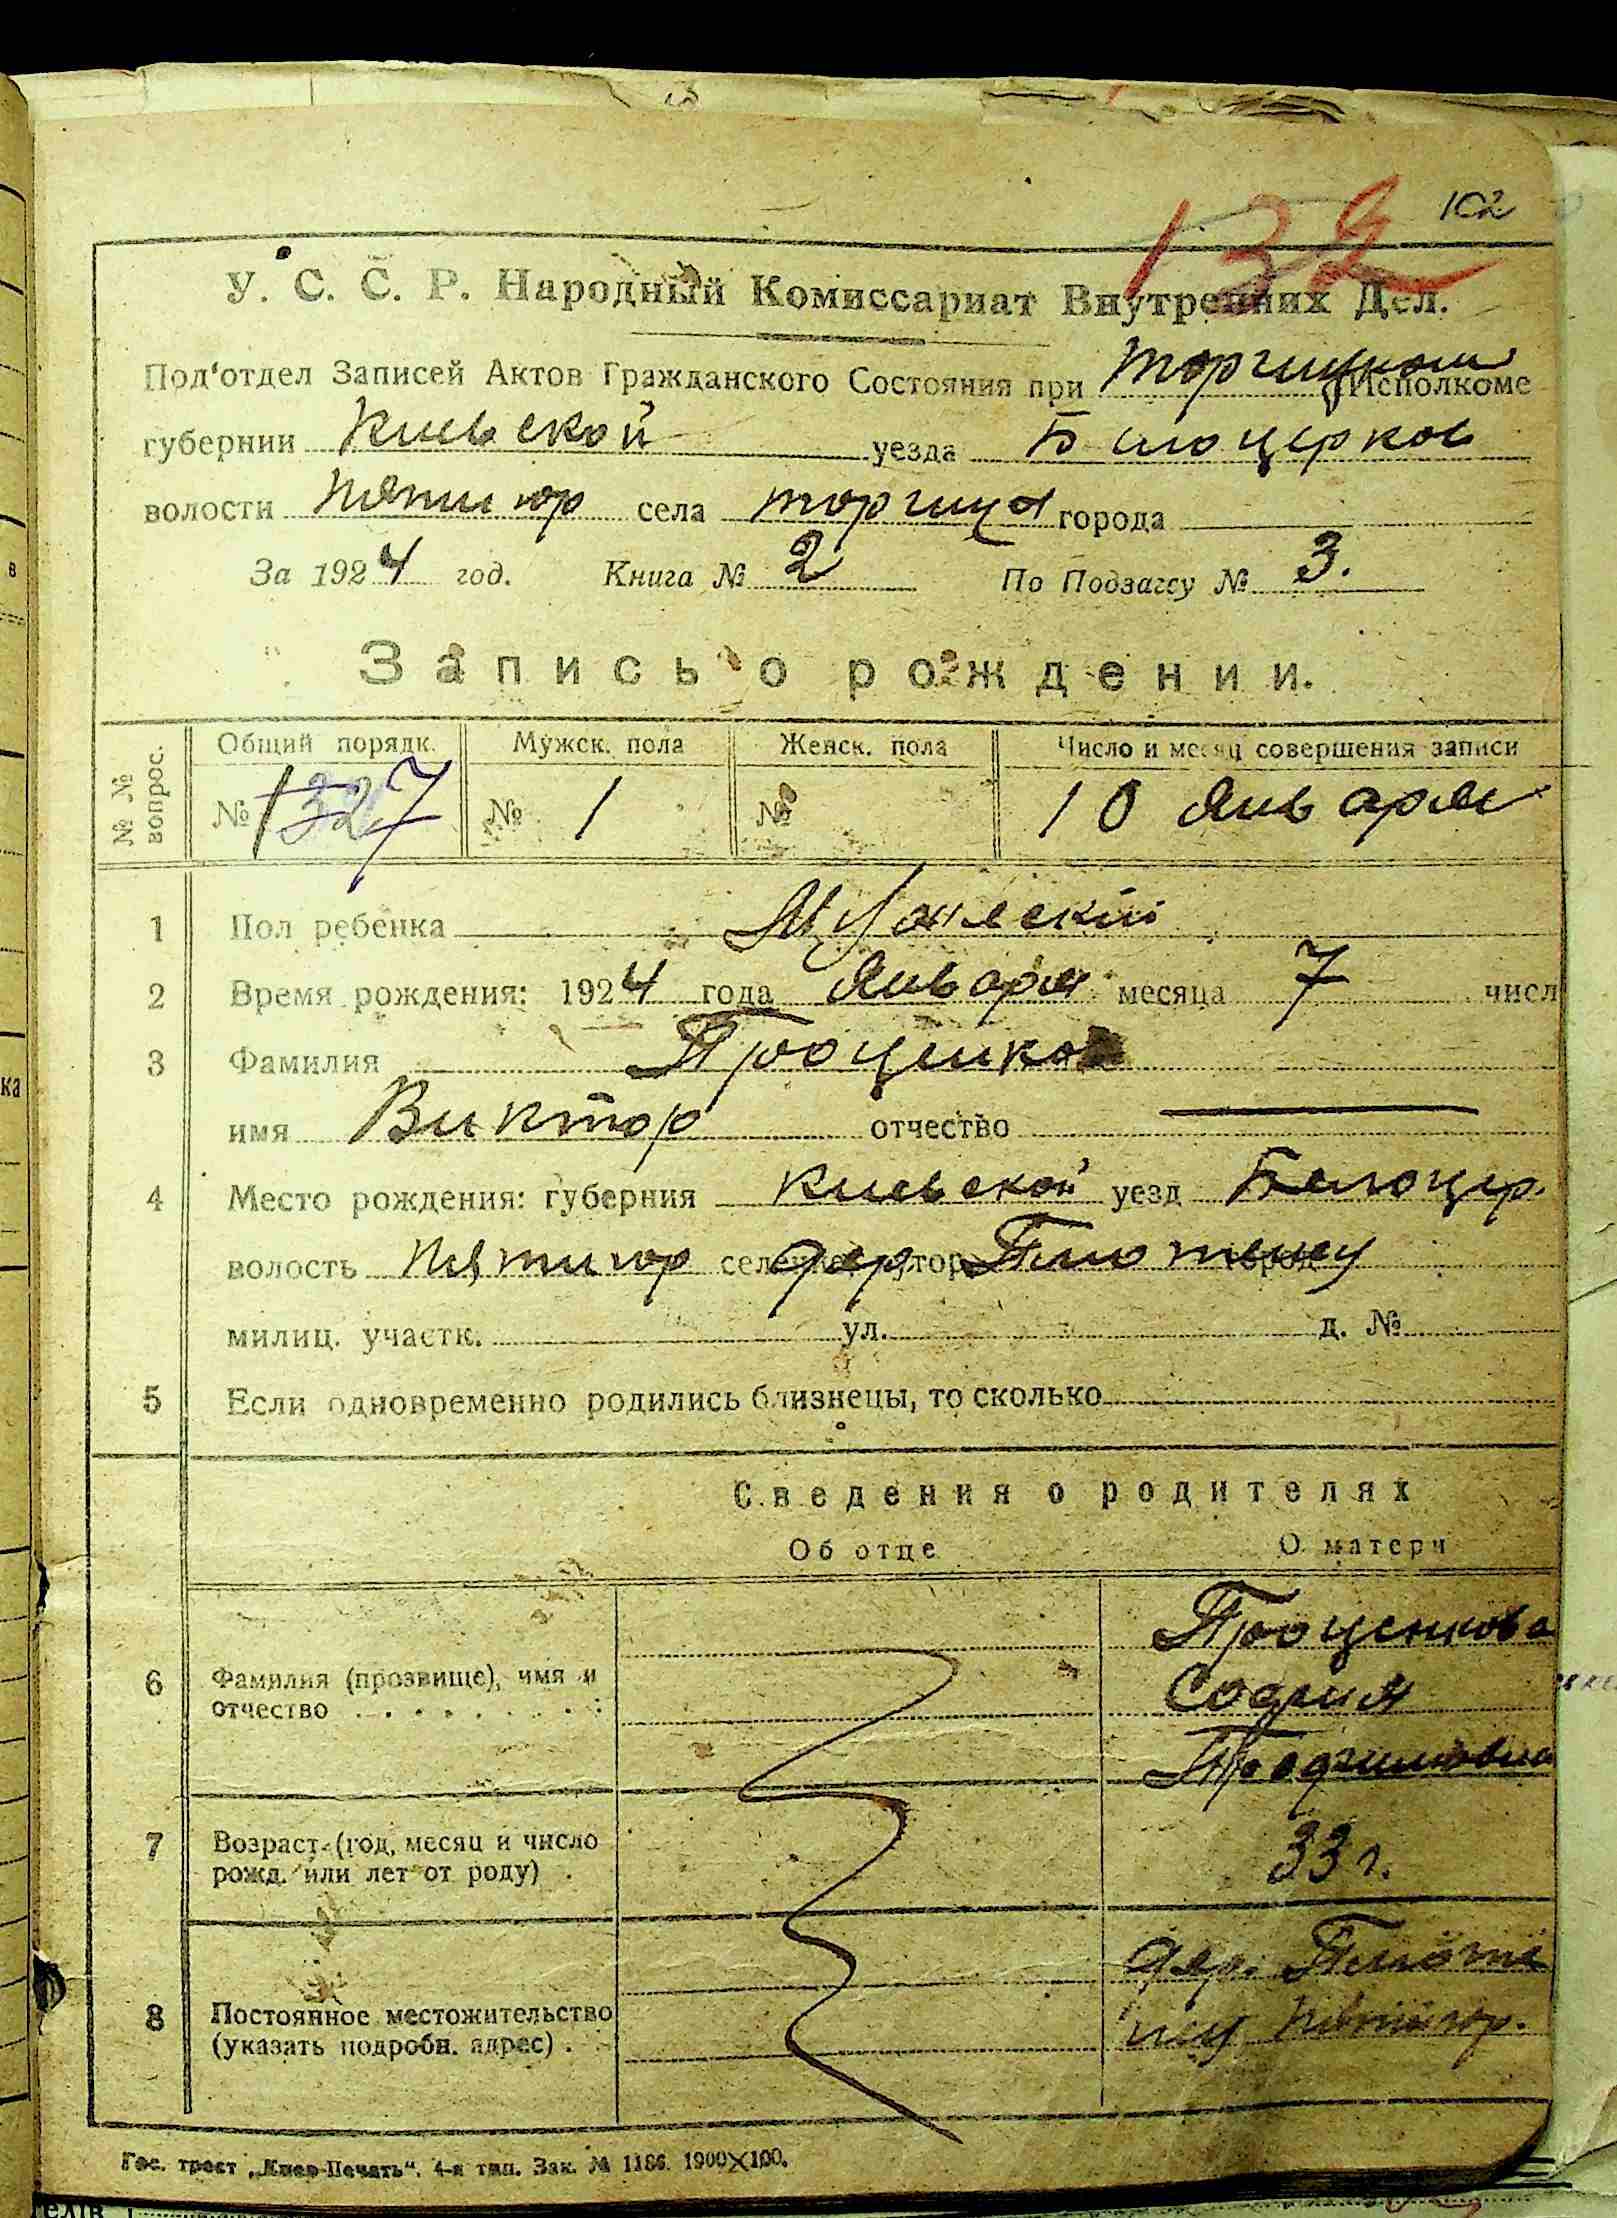 102
132
У. С. С. Р. Народный Комиссариат Внутренних Дел.
Под'отдел Записей Актов Гражданского Состояния при Торчицком Исполкоме
губернии Киевской уезда Белоцерков
волости Пятигор села Торчица города
За 1924 год. Книга № 2 По Подзагсу № 3.
Запись о рождении.
№ № вопрос. Общий порядк. Мужск. пола Женск. пола Число и месяц совершения записи
№ 7 № 1 № 10 Января
1 Пол ребенка Мужеский
2 Время рождения: 1924 года Января месяца 7 числ
3 Фамилия Проценков
имя Виктор отчество
4 Место рождения: губерния Киевской уезд Белоцер.
волость Пятигор дер
милиц. участк. ул. д. №
5 Если одновременно родились близнецы, то сколько
Сведения о родителях
Об отце О матери
Проценкова
6 Фамилия (прозвище), имя и София
отчество Трофимовна
7 Возраст (год, месяц и число 33 г.
рожд. или лет от роду)
дер.
8 Постоянное местожительство Пятигор.
(указать подробн. адрес)
Гос. трест „Киев-Печать". 4-я тип. Зак. № 1186. 1900×100.